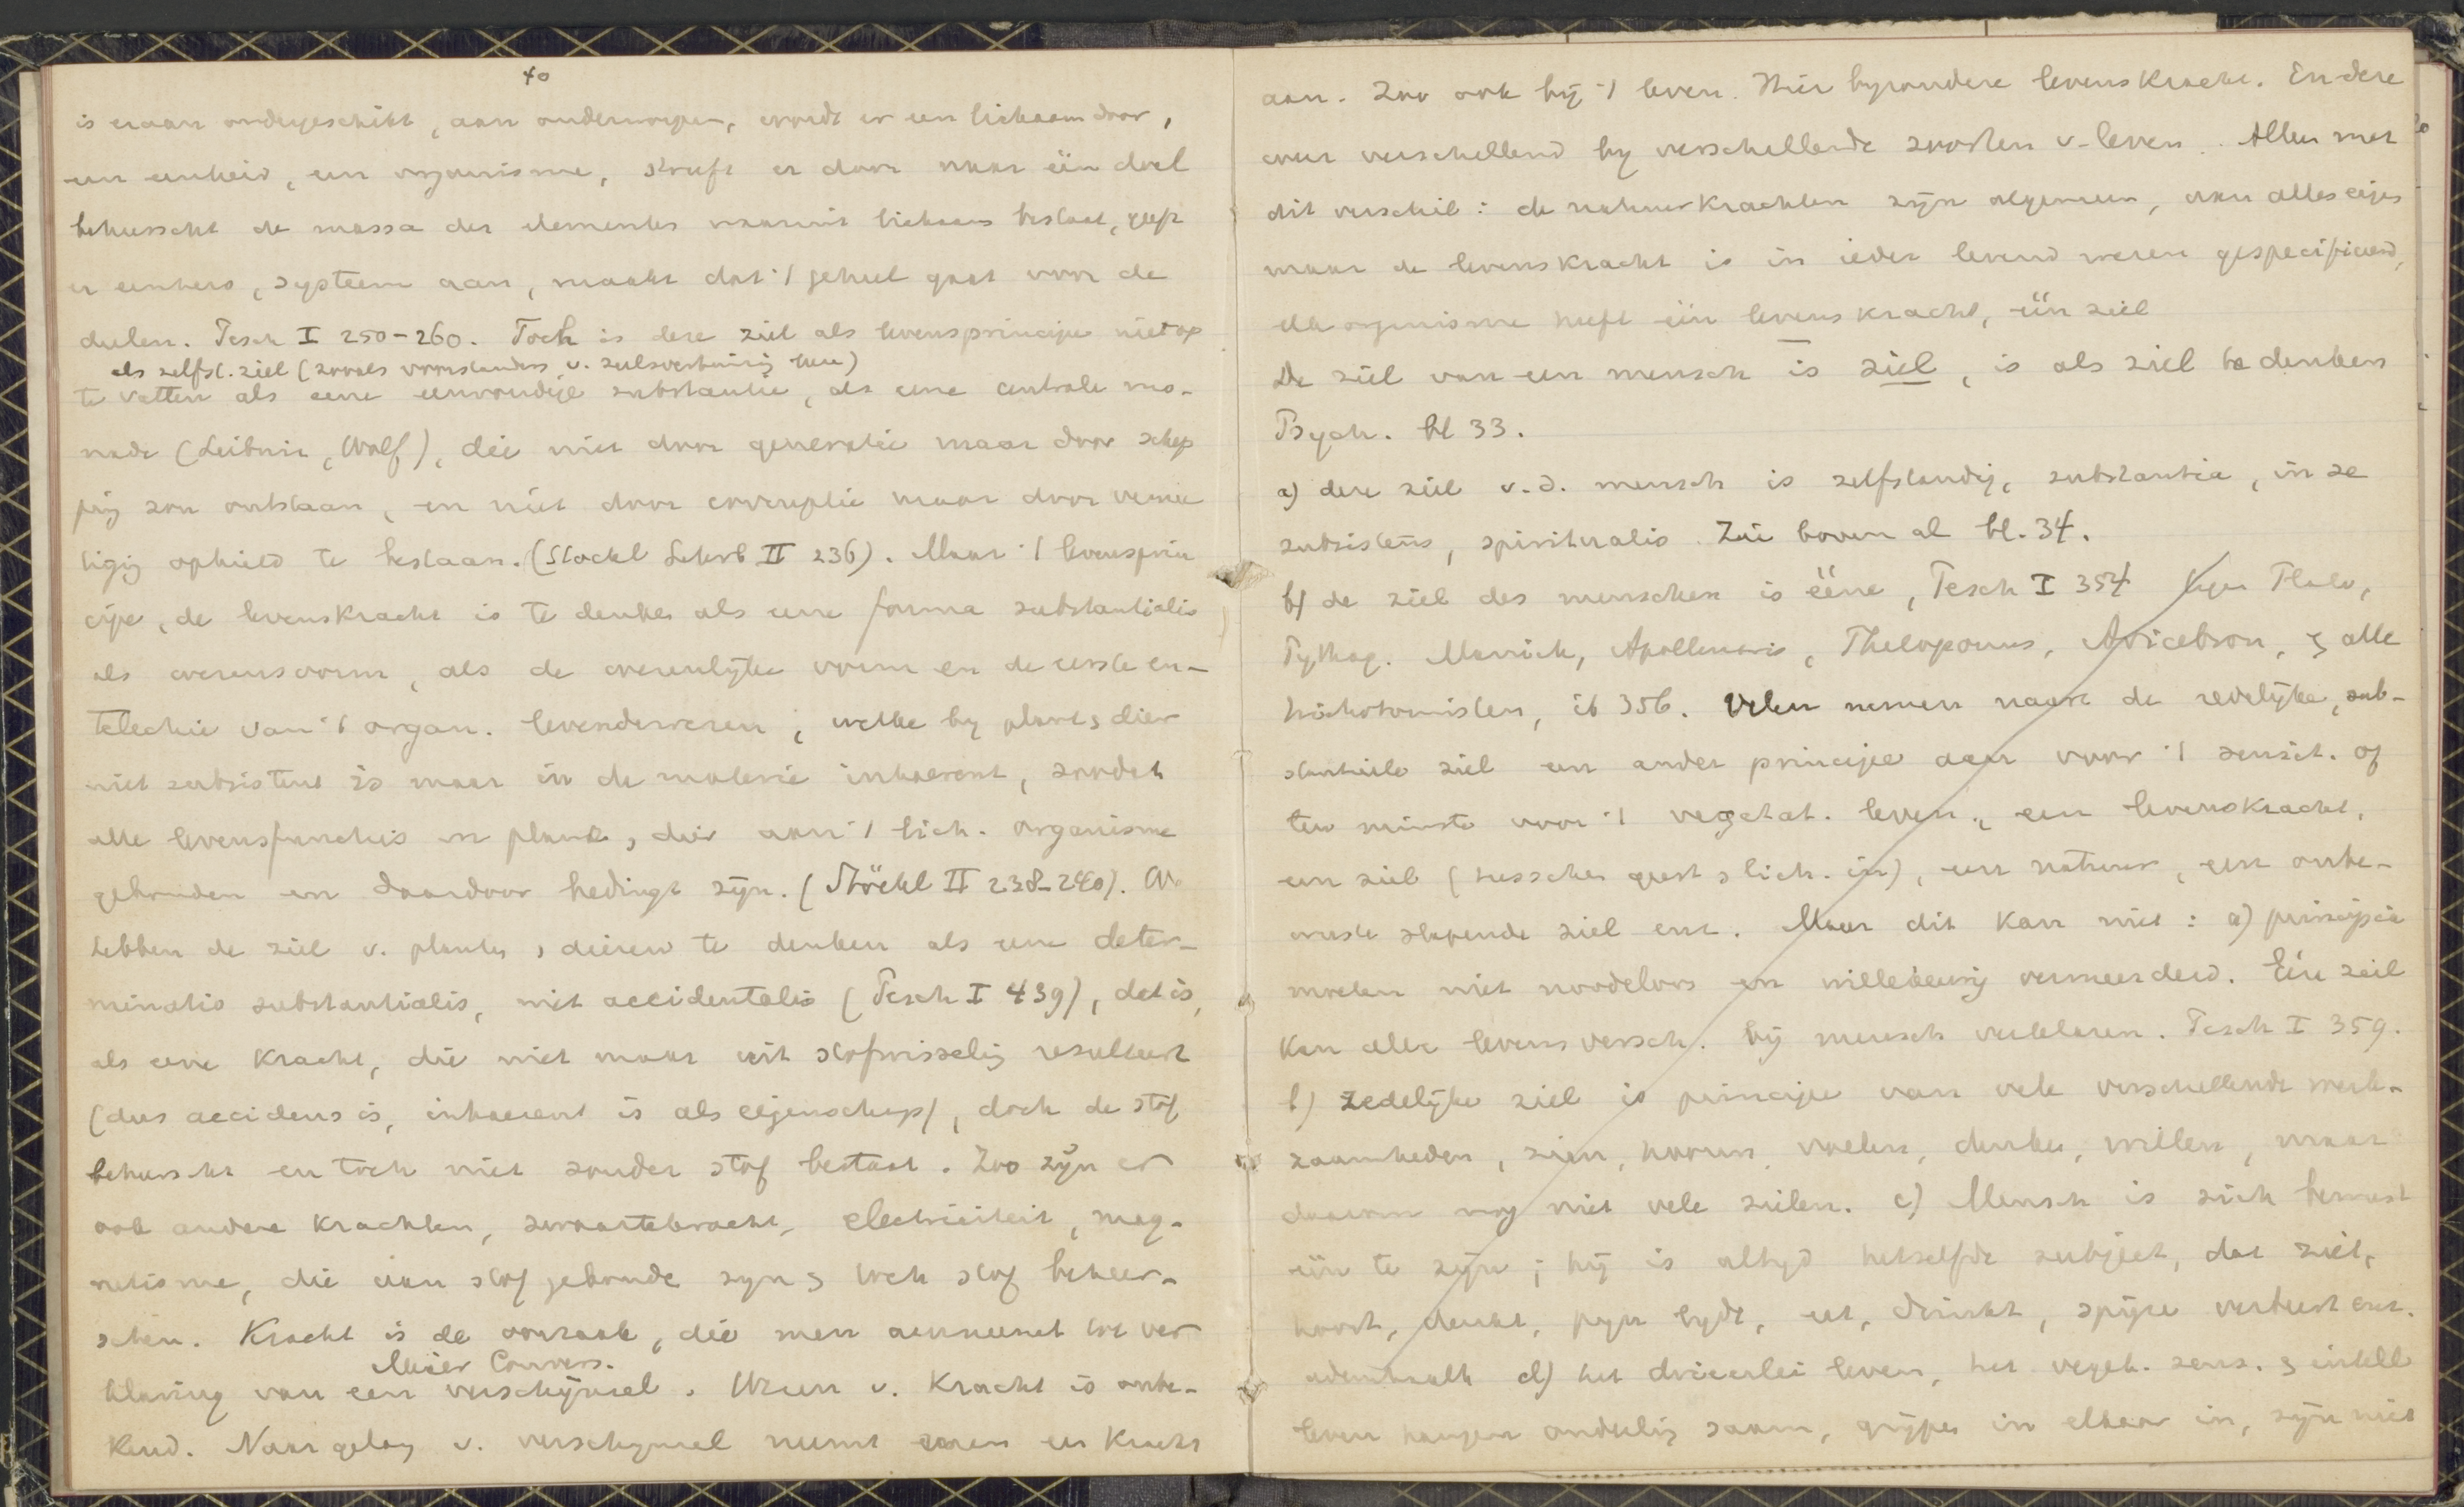 40
is eraan ondergeschikt, aan onderworpen, wordt er een lichaam door,
een eenheid, een organisme, streeft er door naar één doel
beheerscht de massa der elementen waaruit lichaam bestaat, geeft
er eenheid, systeem aan, maakt dat 't geheel gaat voor de
deelen. Pesch I 250-260. Toch is deze ziel als levensprincipe niet op
als zelfst. ziel (zooals voorstanders v. zielsverhuizing leeren)
te vatten als eene eenvoudige substantie, als eene centrale mo-
nade (Leibniz, Wolf), die niet door generatie maar door schep
ping zou ontstaan, en niet door corruptie maar door vernie
tiging ophield te bestaan. (Stöckl Lehrb II 236). Maar 't levensprin
cipe, de levenskracht is te denken als eene forma substantialis
als wezensvorm, als de wezenlijke vorm en de eerste en-
telechie van 't organ. levende wezen, welke by plant, dier
niet subsistent is maar in de materie inhaerent, zoodat
alle levensfuncties in plant, dier aan 't lich. organisme
gebonden en daardoor bedingt zyn. (Stöckl II 238-240). We
hebben de ziel v. planten, dieren te denken als eene deter-
minatio substantialis, niet accidentalis (Pesch I 439), dat is,
als eene kracht, die niet maar uit stofwisseling resulteert
(dus accidens is, inhaerent is als eigenschap), doch de stof
beheerscht en toch niet zonder stof bestaat. Zoo zyn er
ook andere krachten, zwaartekracht, electriciteit, mag-
netisme, die aan stof gebonden zyn & toch stof beheer-
schen. Kracht is de oorzaak, die men aanneemt tot ver
Meier Convers.
klaring van een verschynsel. Wezen v. kracht is onbe-
kend. Naar gelang v. verschynsel neemt men een kracht
aan. Zoo ook bij 't leven. Hier byzondere levenskracht. En deze
weer verschillend by verschillende soorten v. leven. Alleen met
dit verschil: de natuurkrachten zyn algemeen, aan alles eigen
maar de levenskracht is in ieder levend wezen gespecificeerd,
elk organisme heeft één levenskracht, één ziel
De ziel van een mensch is ziel, is als ziel te denken
Psych. bl 33.
a) deze ziel v.d. mensch is zelfstandig, substantia, in se
subsistens, spiritualis. Zie boven al bl. 34.
b) de ziel des menschen is ééne, Pesch I 354 tegen Plato,
Pythag. Manich, Apollinaris, Philoponus, Avicebron, & alle
trichotomisten, ib 356. Velen nemen naast de redelijke, sub-
stantieele ziel een ander principe aan voor 't sensit. of
ten minste voor 't vegetat. leven, een levenskracht,
een ziel (tusschen geest & lich. in), een natuur, een onbe-
wuste slapende ziel enz. Maar dit kan niet: a) principia
moeten niet noodeloos en willekeurig vermeerderd. Eén ziel
kan alle levensversch. bij mensch verklaren. Pesch I 359.
b) zedelijke ziel is principe van vele verschillende werk-
zaamheden, zien, hooren, voelen, denken, willen, maar
daarom nog niet vele zielen. c) Mensch is zich bewust
één te zijn; hij is altyd hetzelfde subject, dat ziet,
hoort, denkt, pyn lydt, eet, drinkt, spijze verteert enz.
ademhaalt d) het drieërlei leven, het veget. sens. & intell
leven hangen onderling saam, grijpen in elkaar in, zijn niet